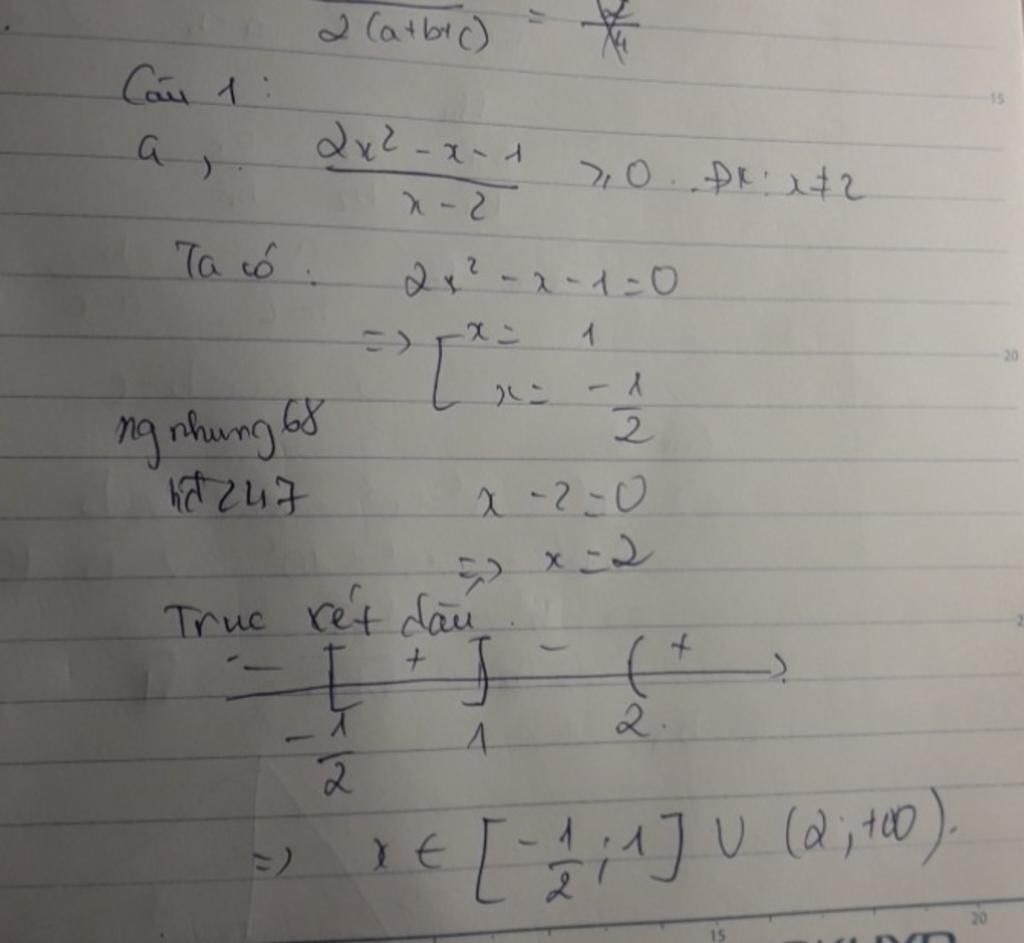 2(a+b+c) =
15
Câu 1 :
a, 2x² - x - 1 / x - 2 ≥ 0 . ĐK: x ≠ 2
Ta có : 2x² - x - 1 = 0
=> [ x = 1
20
x = -1/2
ngnhung68
hđ247 x - 2 = 0
=> x = 2
Truc xét dấu .
- [ + ] - ( +
-1/2 1 2.
=> x ∈ [-1/2 ; 1] ∪ (2 ; +∞).
15 20